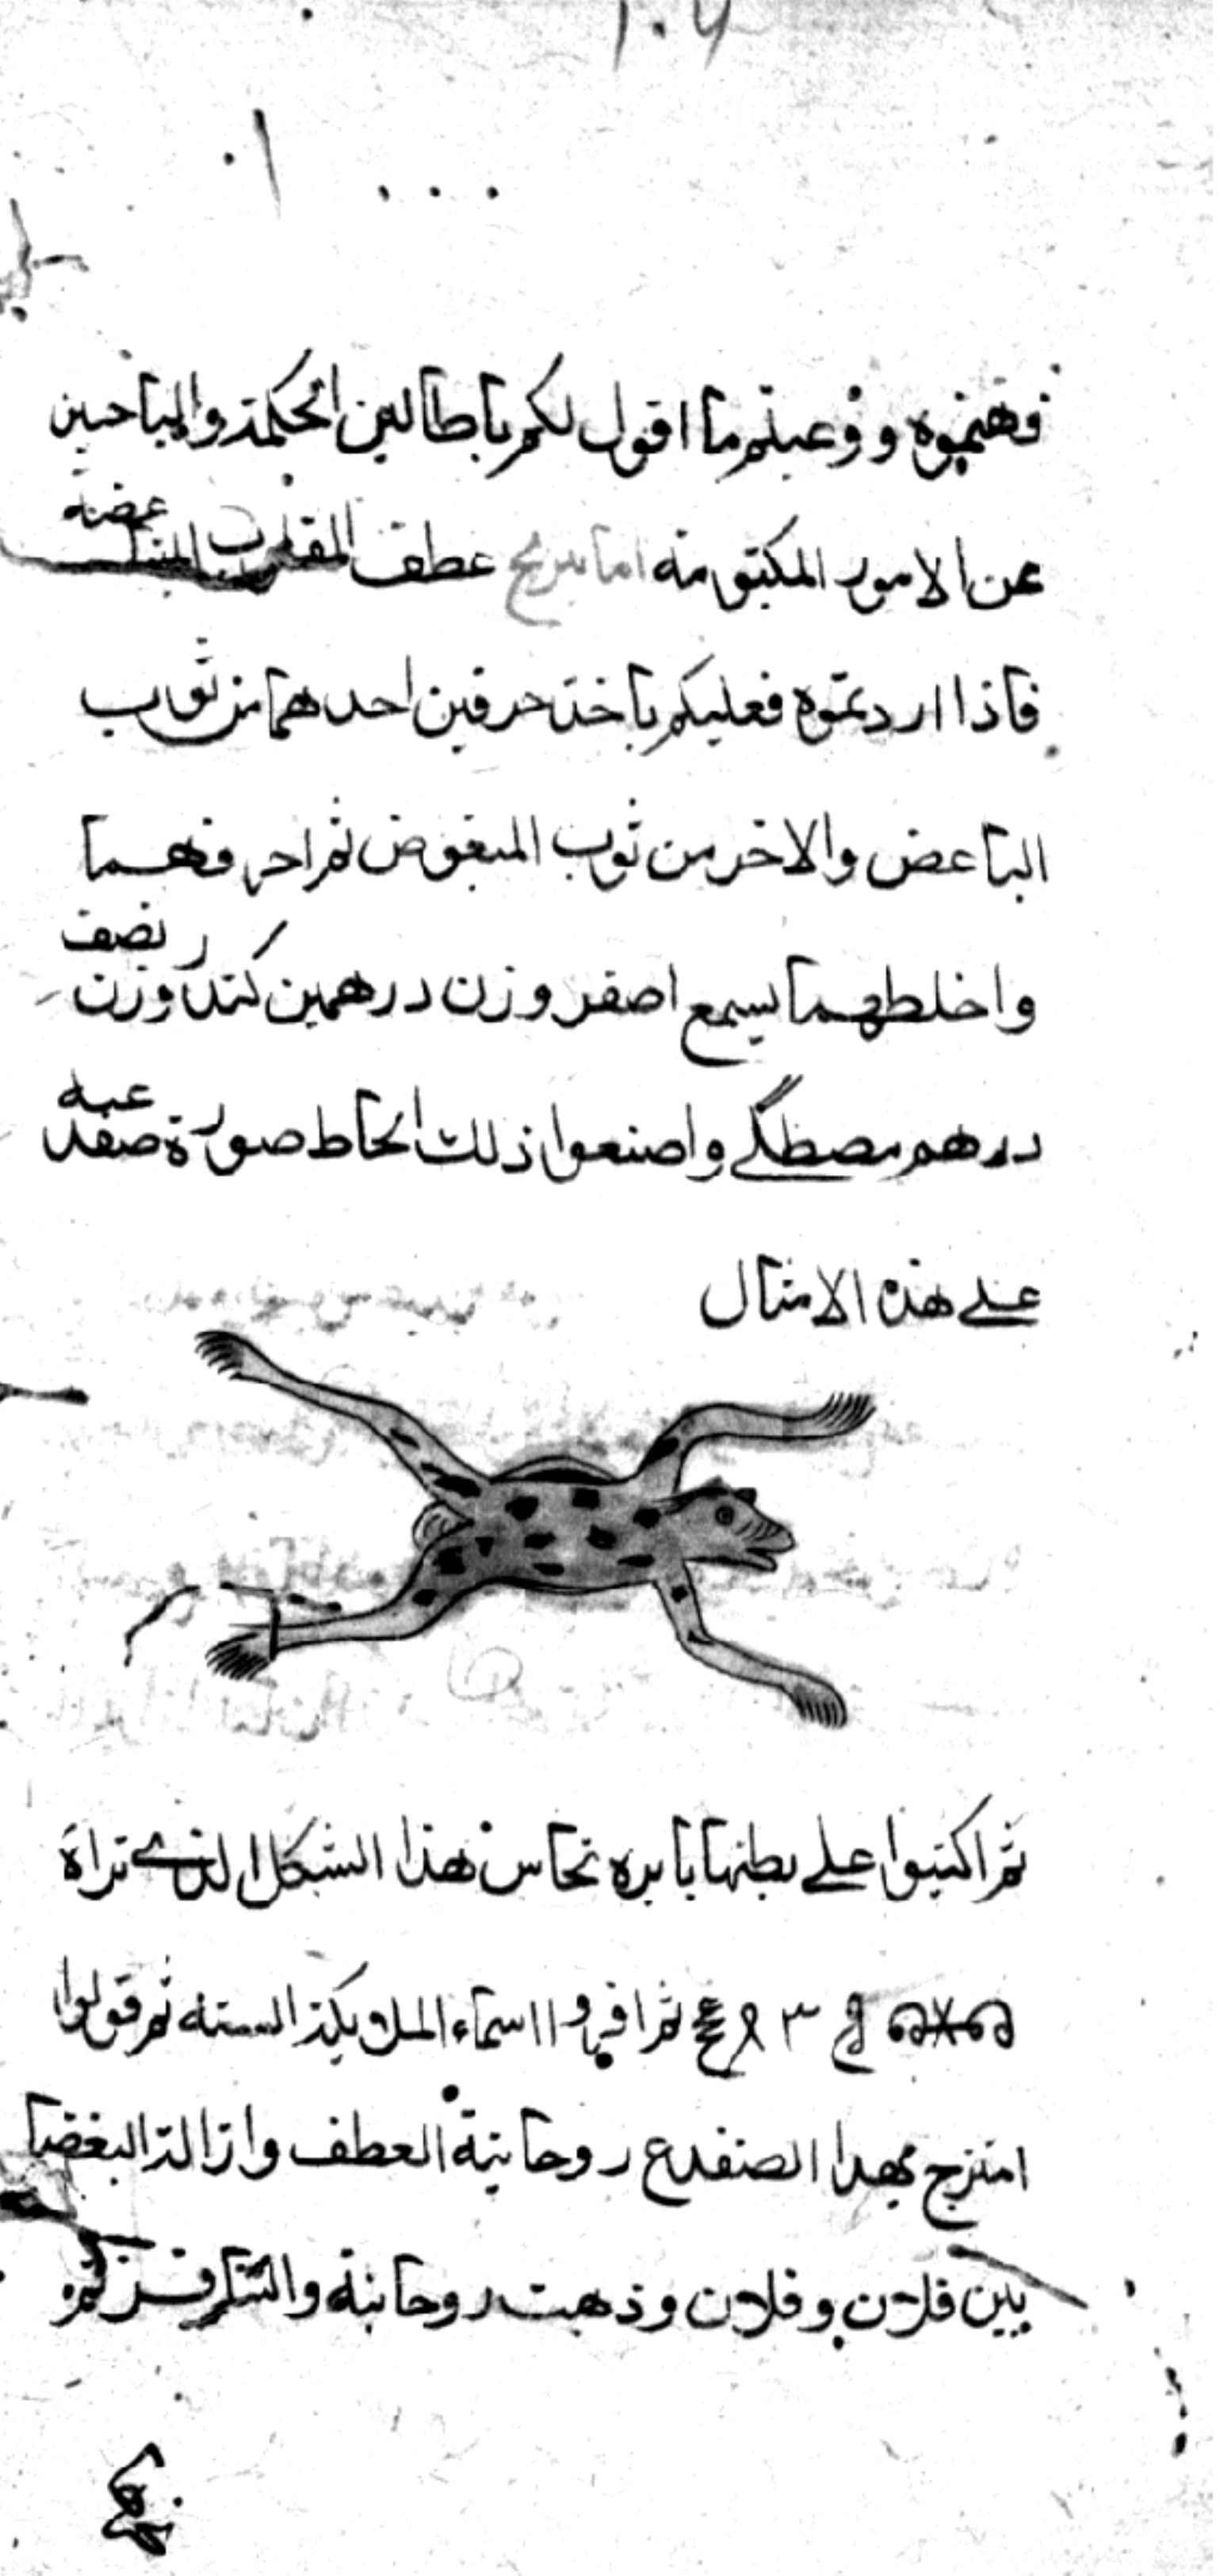 فهمتموه ووعيتم ما اقول لكم يا طالبين الحكمة والباحثين
عن الامور المكتومة اما نيرنج عطف القلوب المتباغضة
فاذا اردتموه فعليكم باخذ خرقتين احدهما من ثوب
الباغض والاخر من ثوب المبغوض ثم احرقهما
واخلطهما بشمع اصفر وزن درهمين كندر وزن نصف
درهم مصطكي واصنعوا ذلك الخاط صورة ضفدعة
على هذه الامثال
ثم اكتبوا على بطنها بابره نحاس هذا الشكل الذي تراه
ثم اسماء الملايكة الستة ثم قولوا
امتزج بهذا الضفدع روحانية العطف وازالة البغضا
بين فلان وفلان وذهبت روحانية